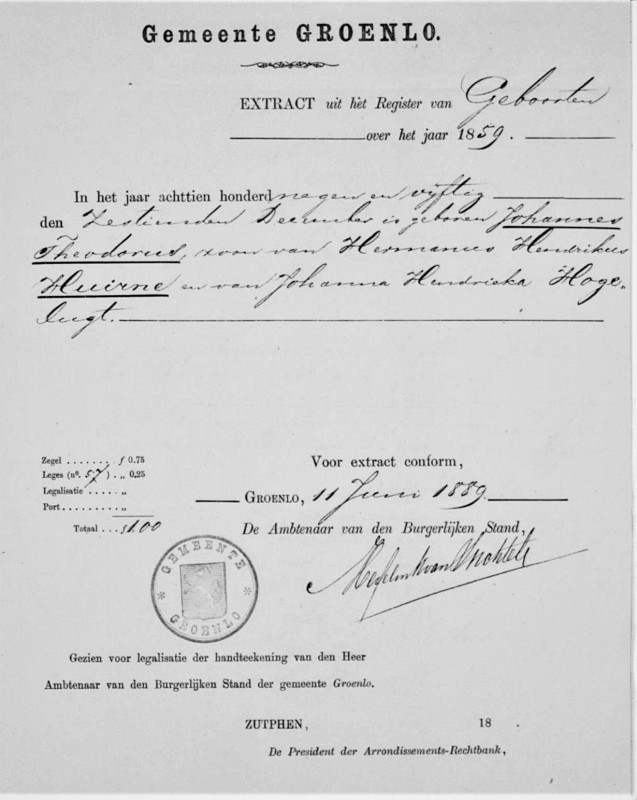 Gemeente GROENLO.
EXTRACT uit het Register van Geboorten
over het jaar 1859.
In het jaar achttien honderd negen en vijftig
den Zestienden December is geboren Johannes
Theodorus, zoon van Hermanus Hendrikus
Huirne en van Johanna Hendrieka Hoge-
lugt.
Zegel . . . . . . . ƒ 0.75
Leges (nº. 57) . „ 0,25
Legalisatie . . . . . „
Port . . . . . . . . . „
Totaal . . . ƒ1.00
Voor extract conform,
GROENLO, 11 Juni 1889.
De Ambtenaar van den Burgerlijken Stand,
GEMEENTE
GROENLO
Gezien voor legalisatie der handteekening van den Heer
Ambtenaar van den Burgerlijken Stand der gemeente Groenlo.
ZUTPHEN, 18 .
De President der Arrondissements-Rechtbank,